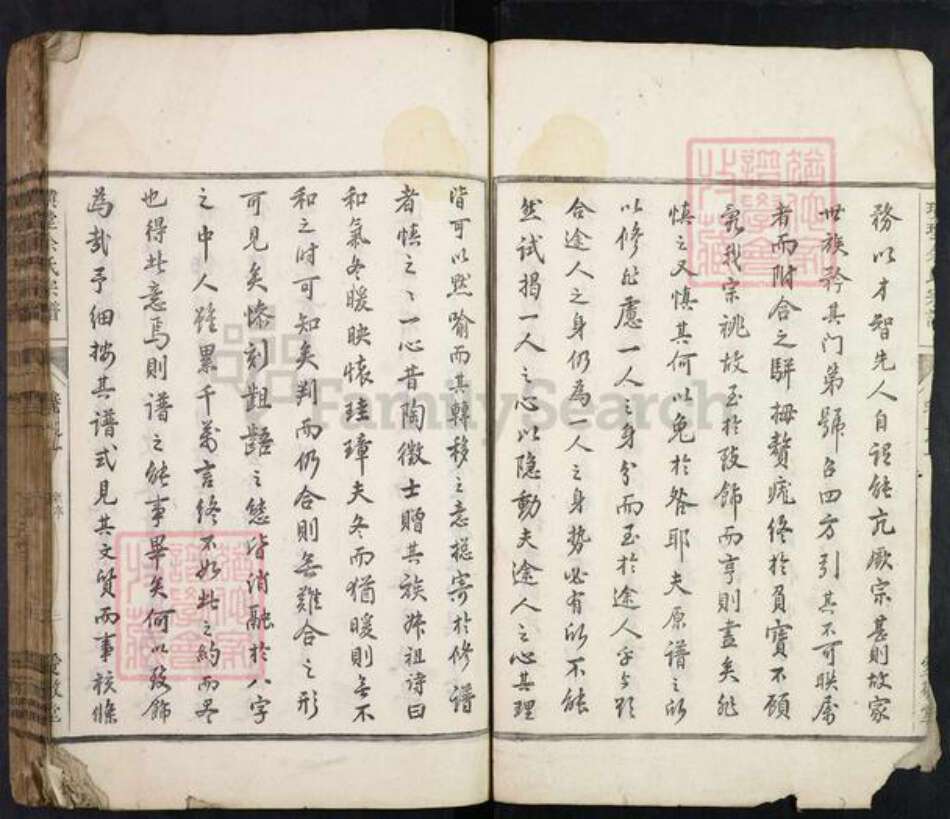 務以才智先人自詡能亢厥宗甚則故家
世族矜其門第號召四方引其不可聯屬
者而附合之駢拇贅疣終於負實不顧
我宗祧故至於致飾而亨則盡矣能
慎之又慎其何以免於咎耶夫原譜之所
以修能慮一人之身分而至於途人乎與欲
合途人之身仍為一人之身勢必有所不能
然試揭一人之心以隱動夫途人之心其理
皆可以默喻而其轉移之意摠寄於修譜
者慎之之一心昔陶徵士贈其族姊祖詩曰
和氣冬暖映懷珪璋夫冬而猶暖則無不
和之时可知矣判而仍合則無難合之形
可見矣慘刻齟齬之態皆消融於八字
之中人雖累千萬言終不如此之約而尽
也得此意焉則譜之能事畢矣何以致飾
為哉予細按其譜式見其文質而事核條
氏宗譜
愛敬堂
Family Search